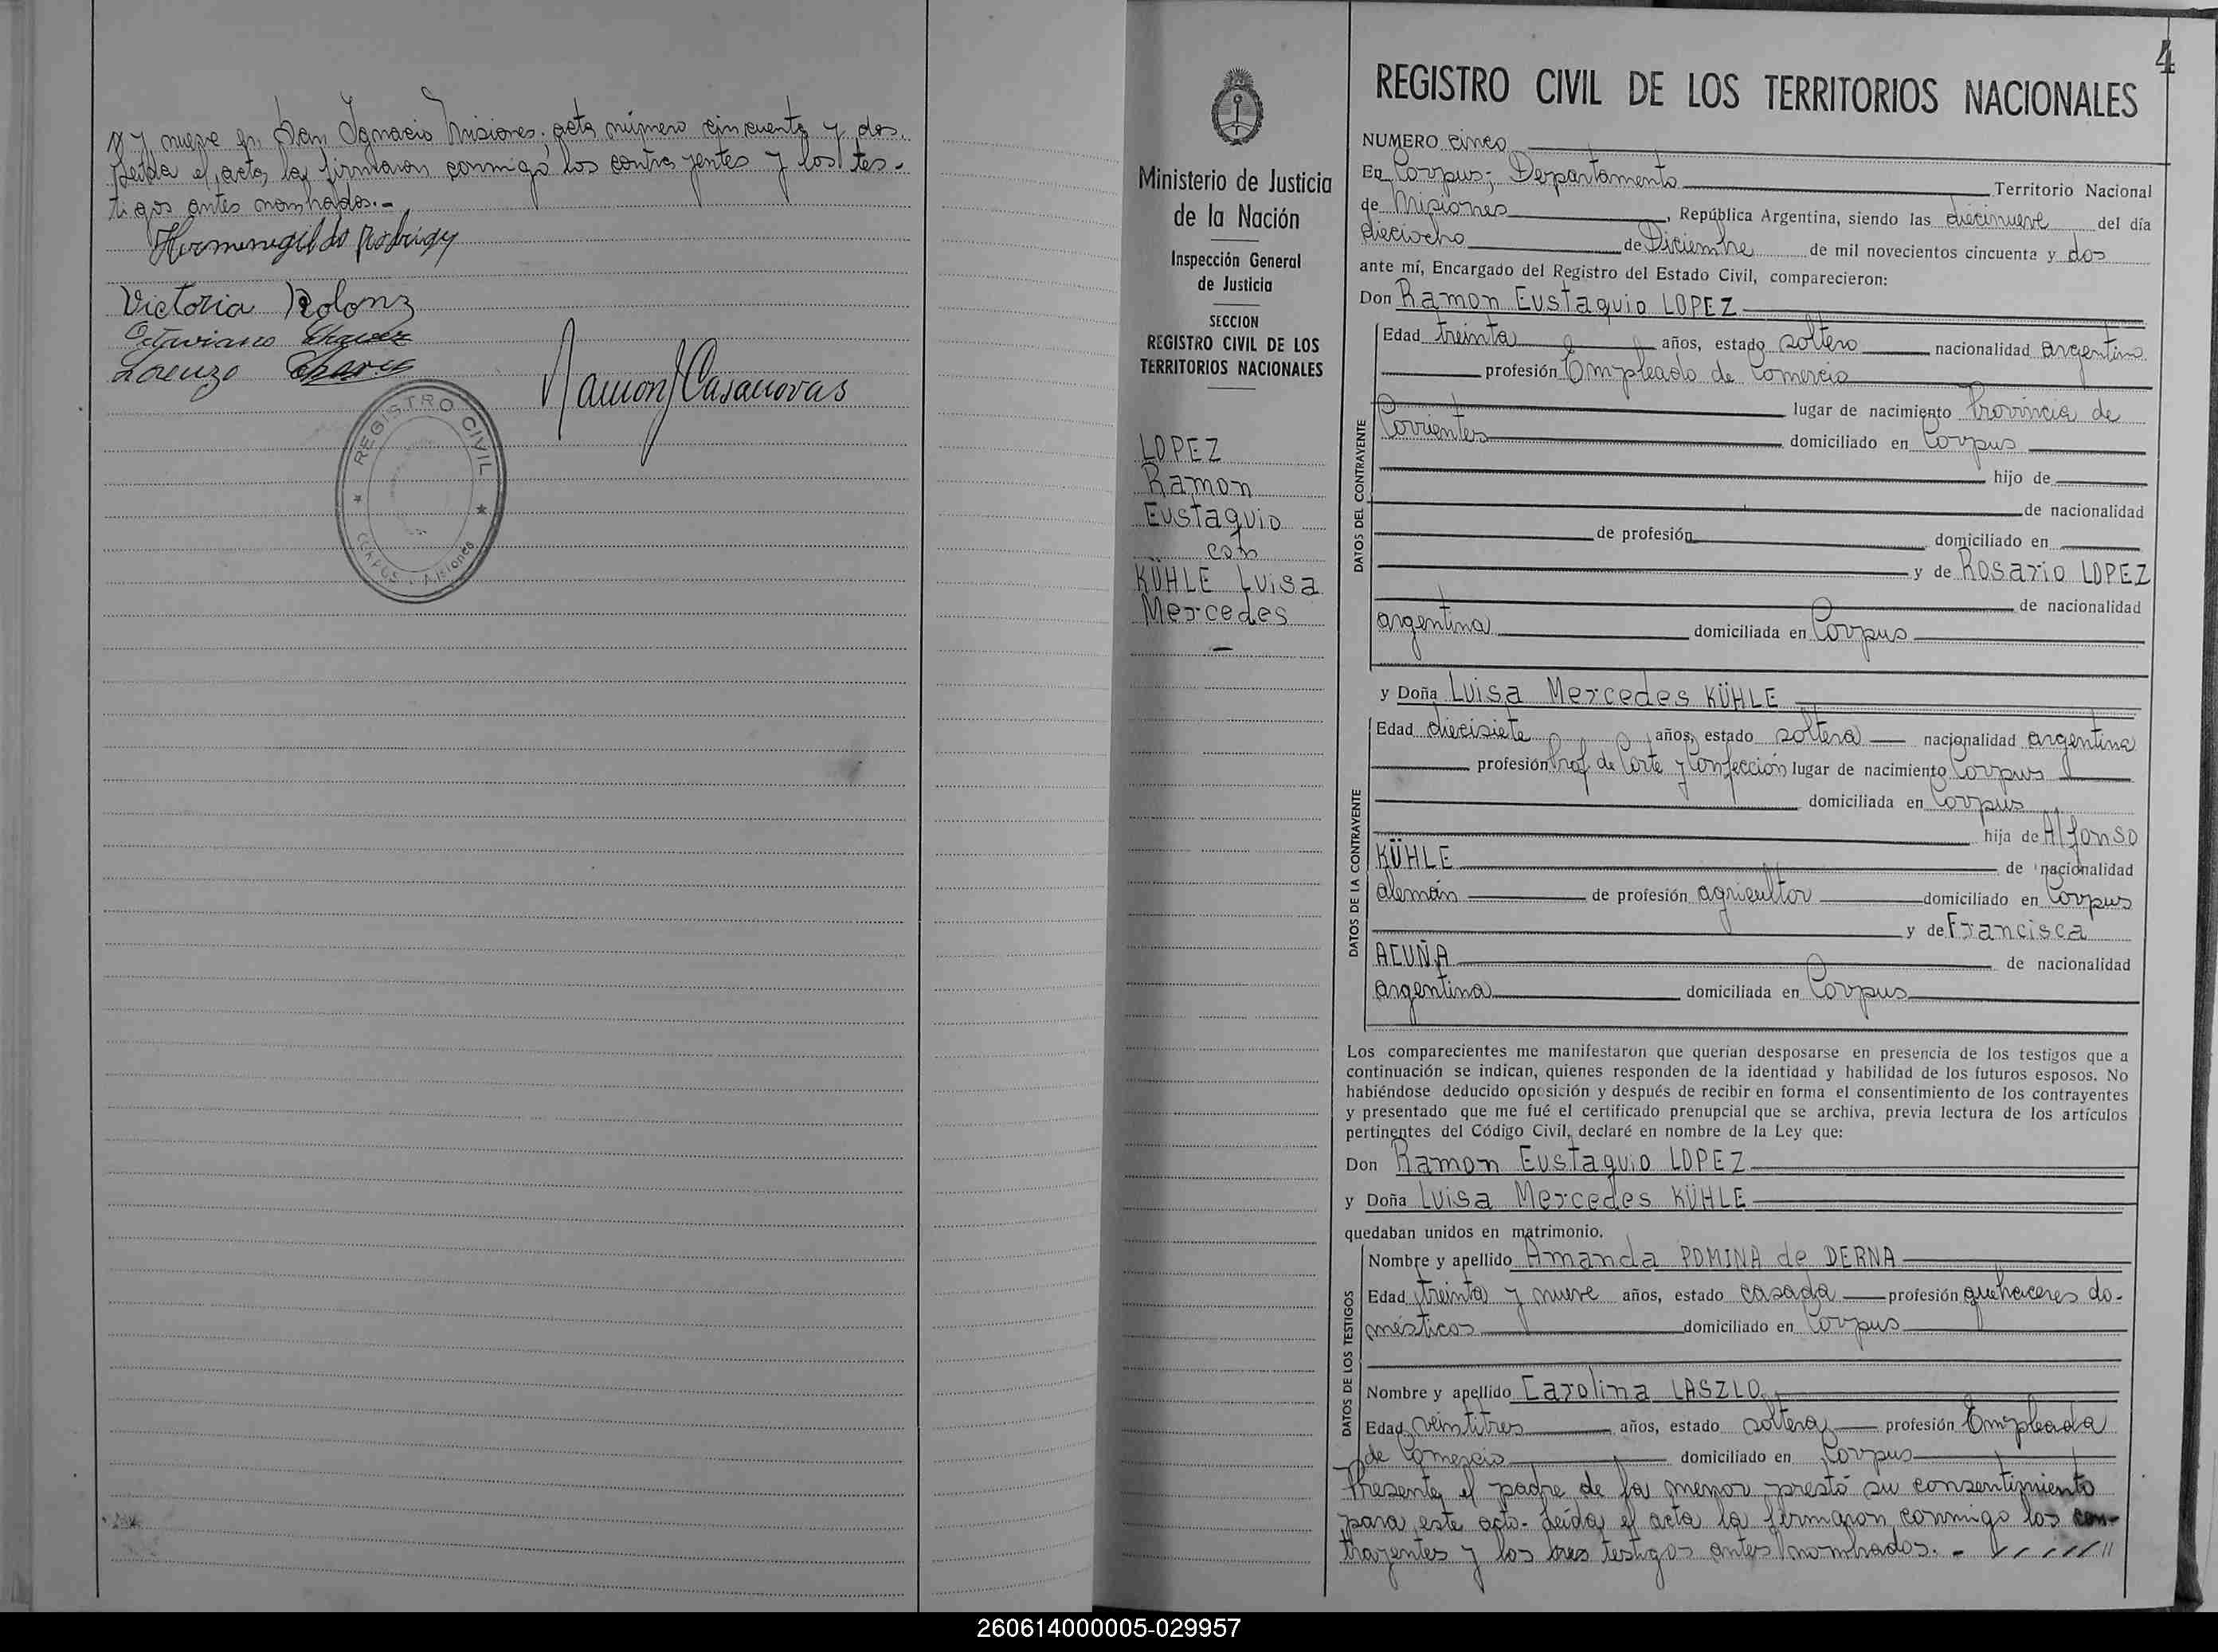 y nueve en San Ignacio Misiones; acta número cincuenta y dos.
Leída el acta, la firmaron conmigo los contrayentes y los tes-
tigos antes nombrados.-
Hermenegildo
Victoria
Octaviano Chavez
Lorenzo
Ramon Casanovas
REGISTRO CIVIL
CORPUS Misiones
4
Ministerio de Justicia
de la Nación
Inspección General
de Justicia
SECCION
REGISTRO CIVIL DE LOS
TERRITORIOS NACIONALES
LOPEZ
Ramon
Eustaquio
con
KÜHLE Luisa
Mercedes
REGISTRO CIVIL DE LOS TERRITORIOS NACIONALES
NUMERO cinco
En Corpus; Departamento Territorio Nacional
de Misiones, República Argentina, siendo las diecinueve del día
dieciocho de Diciembre de mil novecientos cincuenta y dos
ante mí, Encargado del Registro del Estado Civil, comparecieron:
Don Ramon Eustaquio LOPEZ
DATOS DEL CONTRAYENTE
Edad treinta años, estado soltero nacionalidad argentino
profesión Empleado de Comercio
lugar de nacimiento Provincia de
Corrientes domiciliado en Corpus
hijo de
de nacionalidad
de profesión domiciliado en
y de Rosario LOPEZ
de nacionalidad
argentina domiciliada en Corpus
y Doña Luisa Mercedes KÜHLE
DATOS DE LA CONTRAYENTE
Edad diecisiete años, estado soltera nacionalidad argentina
profesión Prof de Corte y Confección lugar de nacimiento Corpus
domiciliada en Corpus
hija de Alfonso
KÜHLE de nacionalidad
alemán de profesión agricultor domiciliado en Corpus
y de Francisca
ACUÑA de nacionalidad
argentina domiciliada en Corpus
Los comparecientes me manifestaron que querían desposarse en presencia de los testigos que a
continuación se indican, quienes responden de la identidad y habilidad de los futuros esposos. No
habiéndose deducido oposición y después de recibir en forma el consentimiento de los contrayentes
y presentado que me fué el certificado prenupcial que se archiva, previa lectura de los artículos
pertinentes del Código Civil, declaré en nombre de la Ley que:
Don Ramon Eustaquio LOPEZ
y Doña Luisa Mercedes KÜHLE
quedaban unidos en matrimonio.
DATOS DE LOS TESTIGOS
Nombre y apellido Amanda POMINA de DERNA
Edad treinta y nueve años, estado casada profesión quehaceres do-
mésticos domiciliado en Corpus
Nombre y apellido Carolina LASZLO
Edad veintitres años, estado soltera profesión Empleada
de Comercio domiciliado en Corpus
Presente el padre de la menor prestó su consentimiento
para este acto.- Leída el acta la firmaron conmigo los con-
trayentes y los tres testigos antes nombrados.-
260614000005-029957